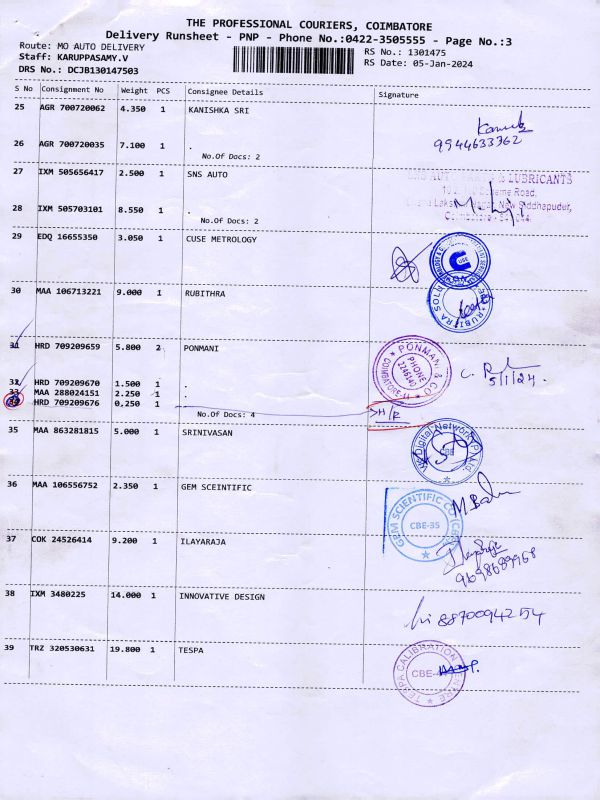 THE PROFESSIONAL COURIERS, COIMBATORE
Delivery Runsheet - PNP - Phone No.:0422-3505555 - Page No.:3
Route: MO AUTO DELIVERY
RS No.: 1301475
Staff: KARUPPASAMY.V
RS Date: 05-Jan-2024
DRS No.: DCJB130147503
S No Consignment No Weight PCS Consignee Details Signature
25 AGR 700720062 4.350 1 KANISHKA SRI
26 AGR 700720035 7.100 1 .
9944633362
No.Of Docs: 2
27 IXM 505656417 2.500 1 SNS AUTO
LUBRICANTS
Road,
28 IXM 505703101 8.550 1 .
New Siddhapudur,
No.Of Docs: 2
29 EDQ 16655350 3.050 1 CUSE METROLOGY
CUSE
30 MAA 106713221 9.000 1 RUBITHRA
31 HRD 709209659 5.800 2 PONMANI
PONMANI & CO
PHONE
2246140
COIMBATORE-44
5/1/24.
32 HRD 709209670 1.500 1 .
33 MAA 288024151 2.250 1 .
HRD 709209676 0.250 1 .
H/R
No.Of Docs: 4
35 MAA 863281815 5.000 1 SRINIVASAN
Digital Network (P) Ltd.
CBE
36 MAA 106556752 2.350 1 GEM SCEINTIFIC
GEM SCIENTIFIC CO
CBE-35
37 COK 24526414 9.200 1 ILAYARAJA
9698689968
38 IXM 3480225 14.000 1 INNOVATIVE DESIGN
8870094254
39 TRZ 320530631 19.800 1 TESPA
TESPA CALIBRATION CENTRE
CBE-